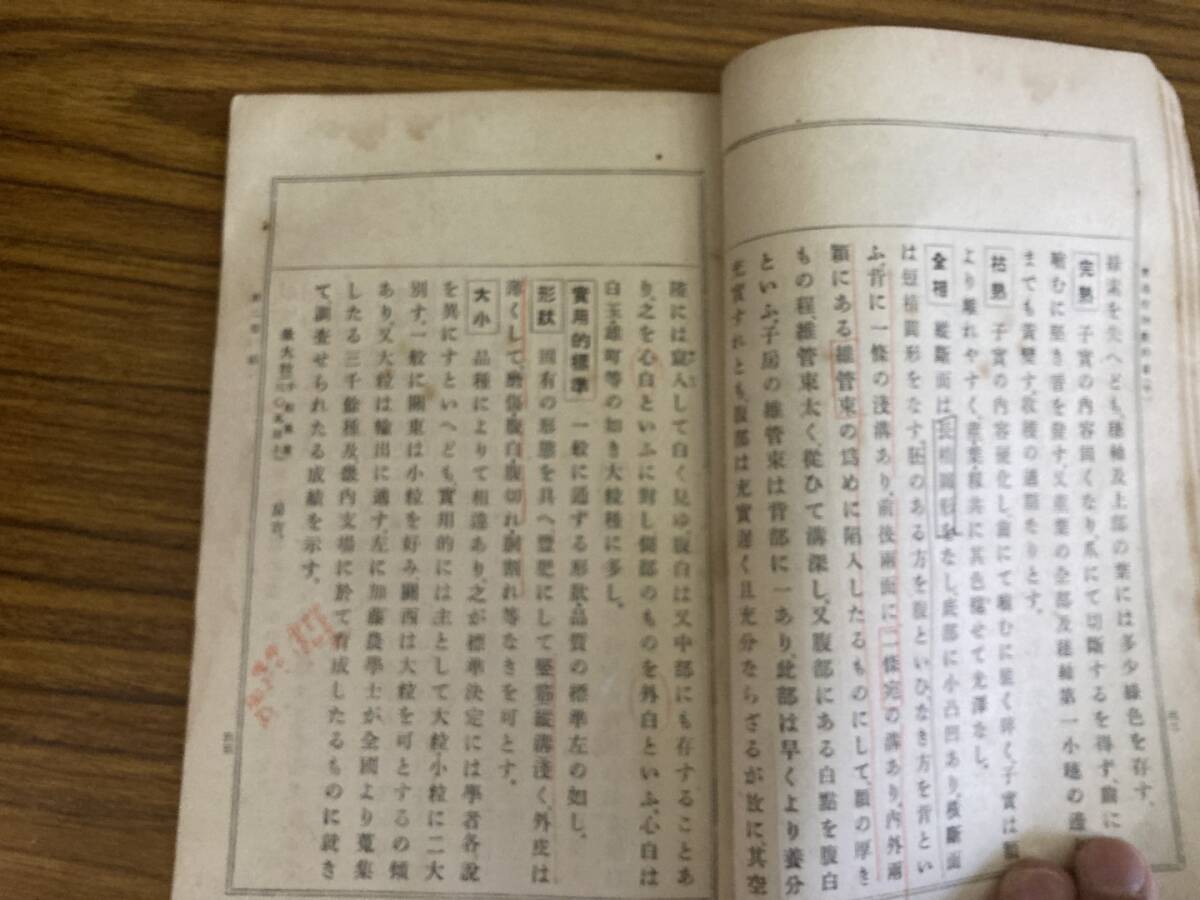 綠素を失へども、穗軸及上部の葉には多少綠色を存す。
完熟 子實の內容固くなり、爪にて切斷するを得ず、齒に
噛むに堅き音を發す、又莖葉の全部及穗軸第一小穗の邊
までも黃變す、收穫の適期なりとす。
枯熟 子實の內容硬化し、齒にて噛むに脆く碎く、子實は
より離れやすく、莖・葉・稈共に其色褪せて光澤なし。
全相 縱斷面は長橢圓形をなし、底部に小凸凹あり、橫斷面
は短橢圓形をなす、胚のある方を腹といひなき方を背とい
ふ、背に一條の淺溝あり、前後兩面に二條宛の溝あり、內外兩
穎にある維管束の爲めに陷入したるものにして、穎の厚き
もの程、維管束太く、從ひて溝深し、又腹部にある白點を腹白
といふ、子房の維管束は背部に一あり、此部は早くより養分
充實すれとも、腹部は充實遲く且充分ならざるが故に、其空
隆には竄入して白く見ゆ、腹白は又中部にも存することあ
り、之を心白といふに對し側部のものを外白といふ、心白は
白玉・雄町等の如き大粒種に多し。
實用的標準 一般に通ずる形狀・品質の標準左の如し。
形狀 固有の形態を具へ豐肥にして堅筋縱溝淺く、外皮は
薄くして、磨傷・腹白・腹切れ・胴割れ等なきを可とす。
大小 品種によりて相違あり、之が標準決定には學者各說
を異にすといへども、實用的には主として大粒小粒に二大
別す、一般に關東は小粒を好み關西は大粒を可とするの傾
あり、又大粒は輸出に適す、左に加藤農學士が全國より蒐集
したる三千餘種及畿内支場に於て育成したるものに就き
て調查せられたる成績を示す。
最大粒